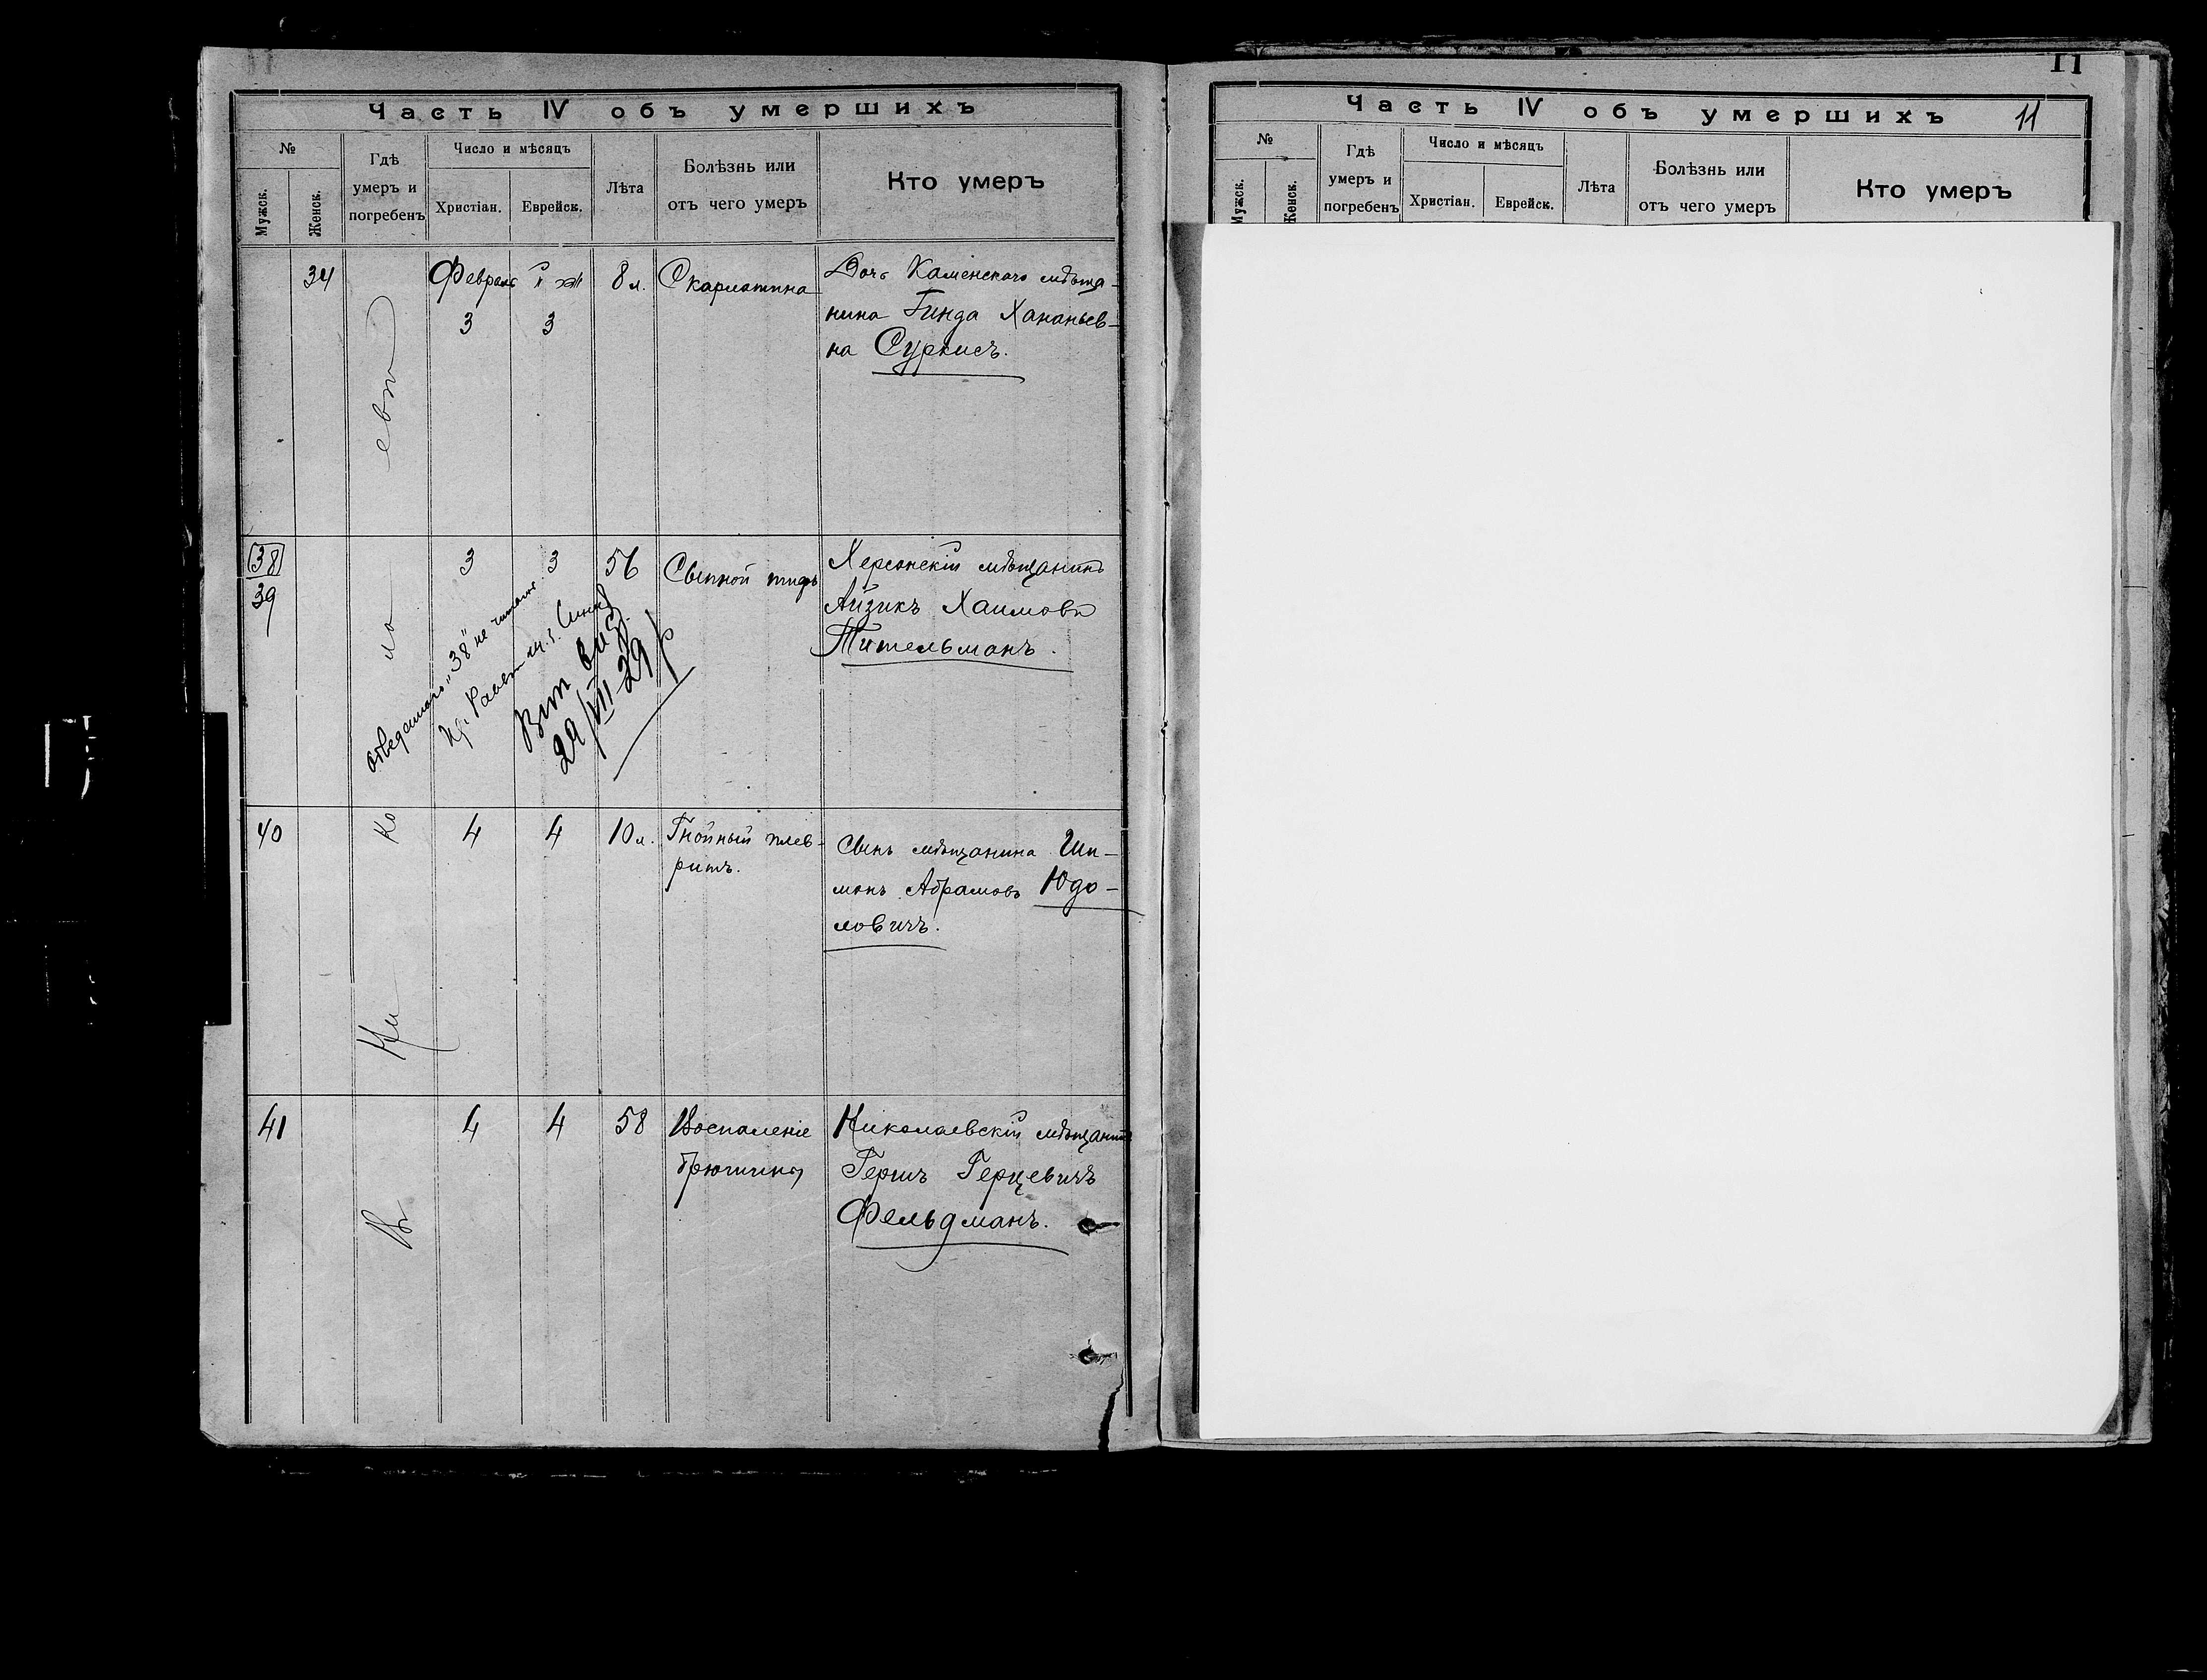 Часть IV объ умершихъ
№
Мужск.
Женск.
Гдѣ
умеръ и
погребенъ
Число и мѣсяцъ
Христіан.
Еврейск.
Лѣта
Болѣзнь или
отъ чего умеръ
Кто умеръ
34
Февраль
3
3
8 л.
Скарлатина
Дочь Каменскаго мѣща-
нина Гинда Хананьев-
на Суркисъ.
38
39
3
3
56
Сыпной тифъ
Херсонскій мѣщанинъ
Айзикъ Хаимовъ
Тительманъ.
"38" не читать.
29/VII-29 р
40
4
4
10 л.
Гнойный плев-
ритъ.
Сынъ мѣщанина Ши-
монъ Абрамовъ Юдо-
ловичъ.
41
4
4
58
Воспаленіе
брюшины
Николаевскій мѣщанинъ
Гершъ Герцевичъ
Фельдманъ.
Въ
Ни
ко
ла
евѣ
Часть IV объ умершихъ
11
11
№
Мужск.
Женск.
Гдѣ
умеръ и
погребенъ
Число и мѣсяцъ
Христіан.
Еврейск.
Лѣта
Болѣзнь или
отъ чего умеръ
Кто умеръ